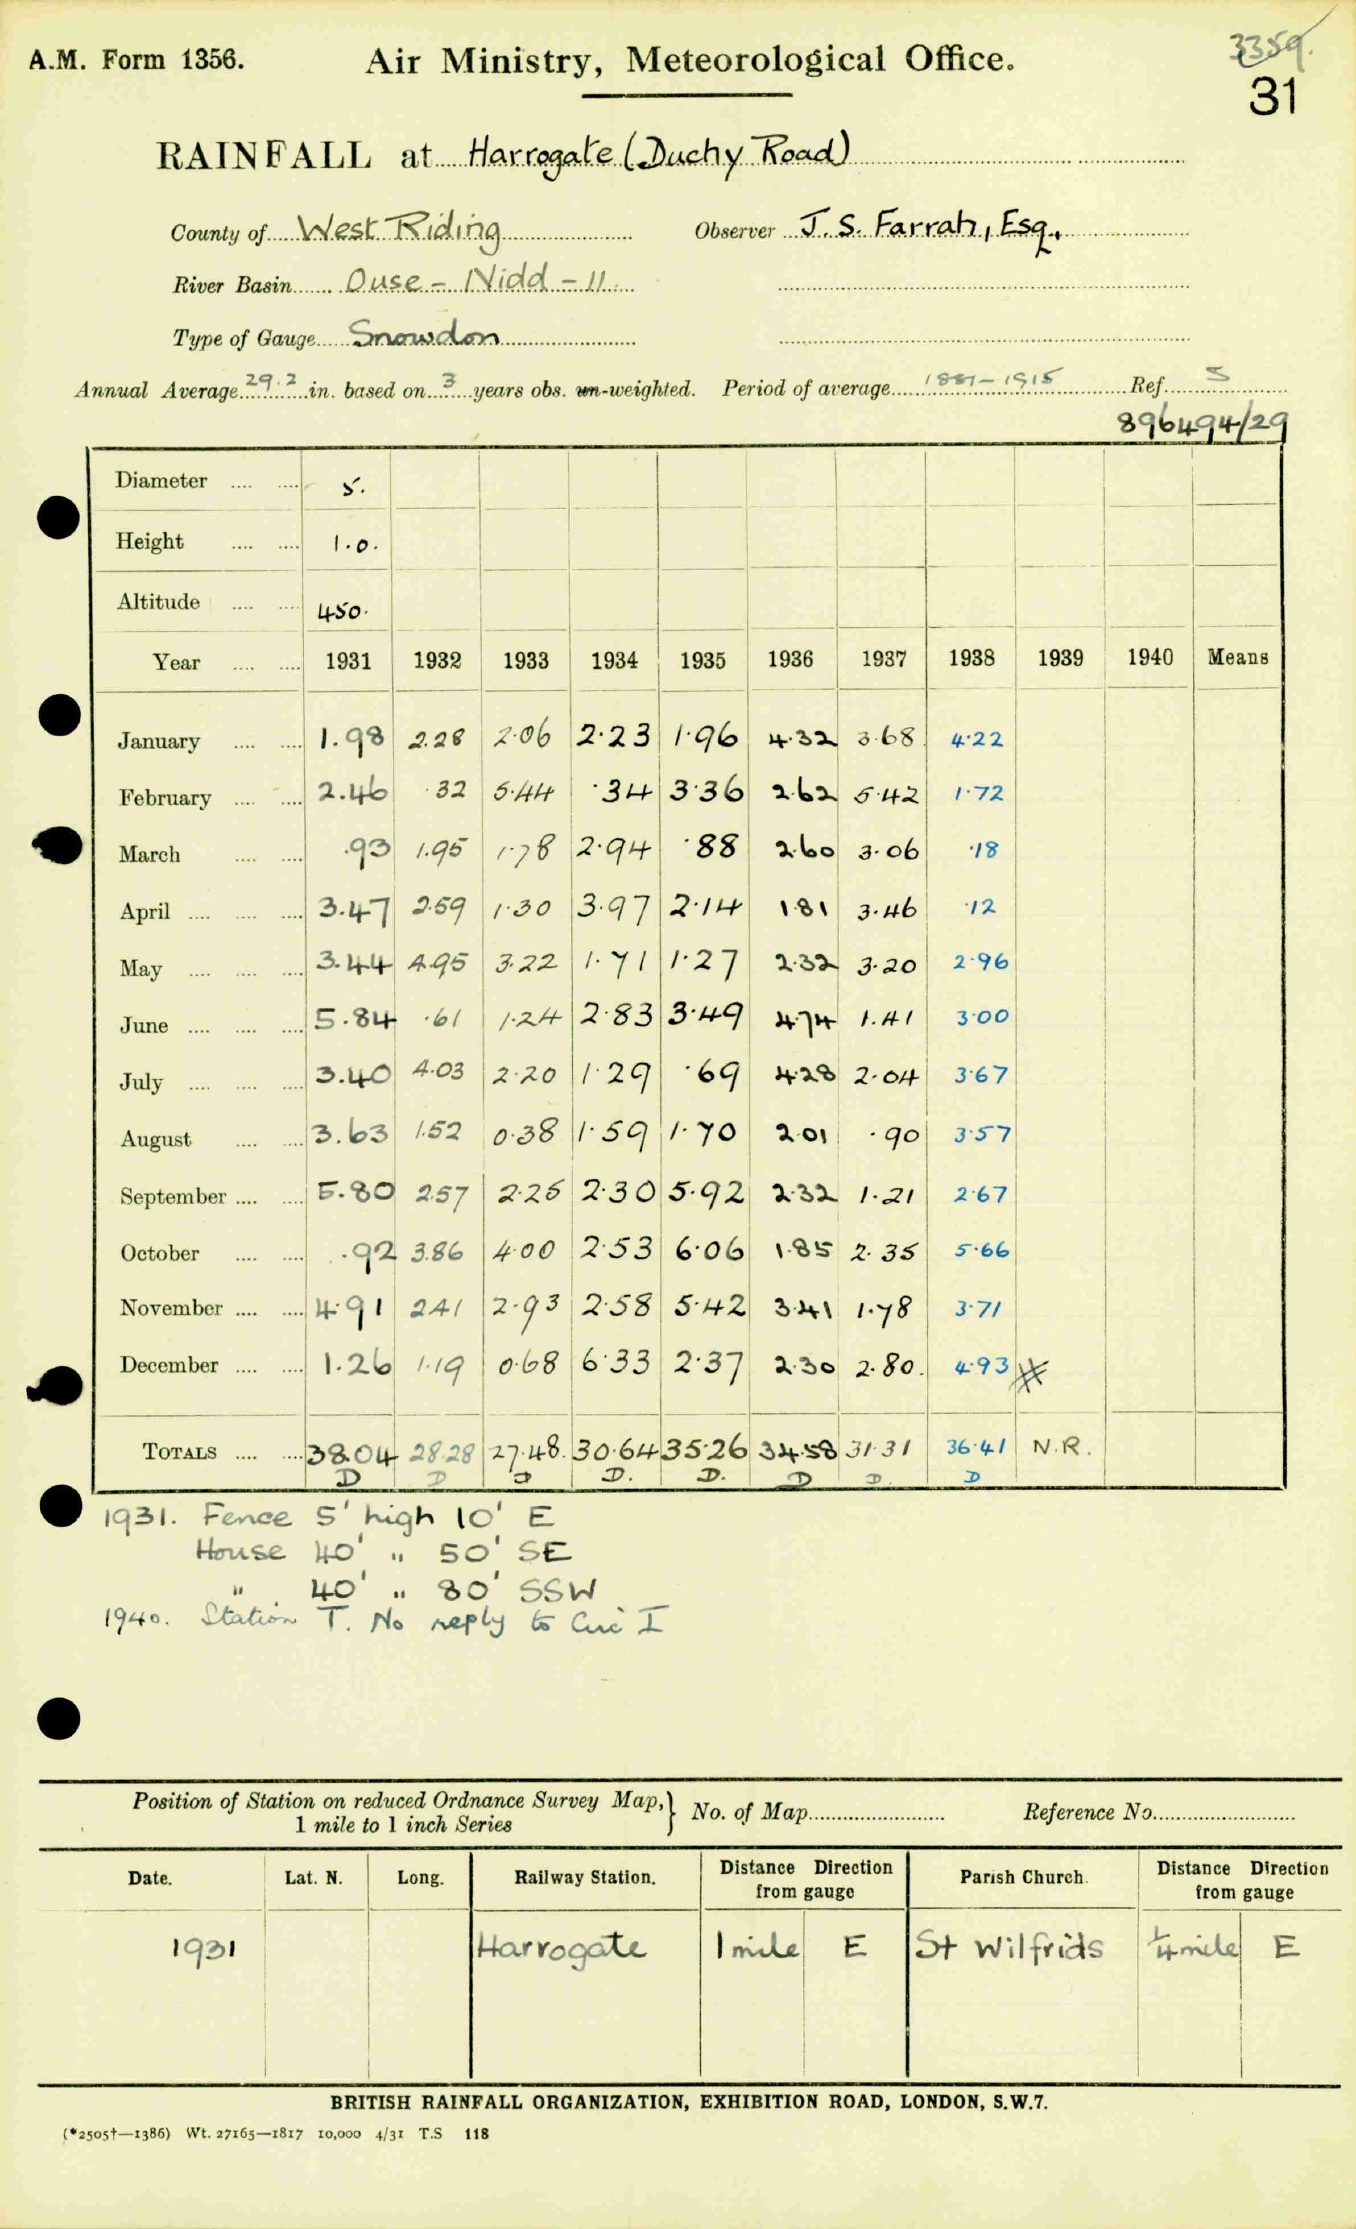 A.M. Form 1356.
Air Ministry, Meteorological Office.
3359.
31
RAINFALL at Harrogate (Duchy Road)
County of West Riding Observer J. S. Farrah, Esq.,
River Basin Ouse - Nidd - 11
Type of Gauge Snowdon
Annual Average 29.2 in. based on 3 years obs. un-weighted. Period of average 1881-1915 Ref. 5
896494/29
Diameter 5.
Height 1.0.
Altitude 450.
Year 1931 1932 1933 1934 1935 1936 1937 1938 1939 1940 Means
January 1.98 2.28 2.06 2.23 1.96 4.32 3.68 4.22
February 2.46 .32 5.44 .34 3.36 2.62 5.42 1.72
March .93 1.95 1.78 2.94 .88 2.60 3.06 .18
April 3.47 2.59 1.30 3.97 2.14 1.81 3.46 .12
May 3.44 4.95 3.22 1.71 1.27 2.32 3.20 2.96
June 5.84 .61 1.24 2.83 3.49 4.74 1.41 3.00
July 3.40 4.03 2.20 1.29 .69 4.28 2.04 3.67
August 3.63 1.52 0.38 1.59 1.70 2.01 .90 3.57
September 5.80 2.57 2.25 2.30 5.92 2.32 1.21 2.67
October .92 3.86 4.00 2.53 6.06 1.85 2.35 5.66
November 4.91 2.41 2.93 2.58 5.42 3.41 1.78 3.71
December 1.26 1.19 0.68 6.33 2.37 2.30 2.80. 4.93
TOTALS 38.04 28.28 27.48. 30.64 35.26 34.58 31.31 36.41 N.R.
D D D D. D. D D. D
1931. Fence 5' high 10' E
House 40' " 50' SE
" 40' " 80' SSW
1940. Station T. No reply to Circ I
Position of Station on reduced Ordnance Survey Map, 1 mile to 1 inch Series } No. of Map Reference No.
Date. Lat. N. Long. Railway Station. Distance Direction from gauge Parish Church. Distance Direction from gauge
1931 Harrogate 1 mile E St Wilfrids ¼ mile E
BRITISH RAINFALL ORGANIZATION, EXHIBITION ROAD, LONDON, S.W.7.
(*2505†—1386) Wt. 27165—1817 10,000 4/31 T.S 118